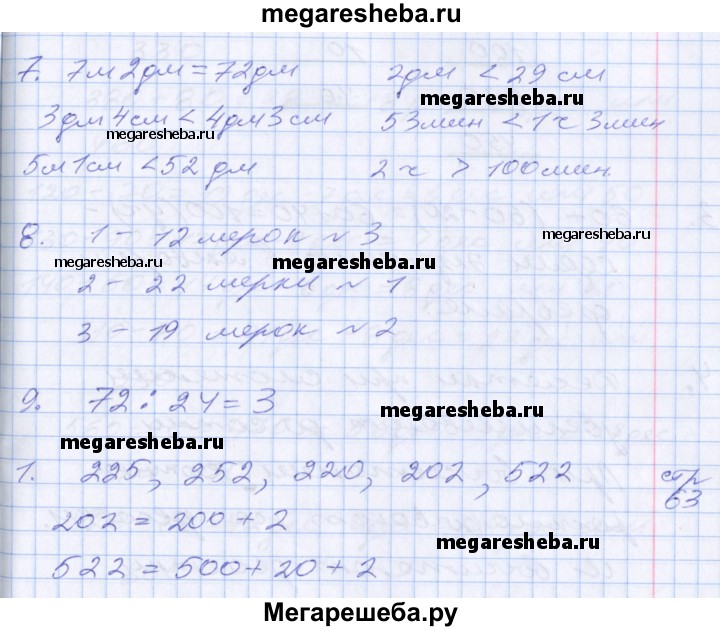 megaresheba.ru
7. 7м 2дм = 72дм 2дм < 29 см
megaresheba.ru
3дм 4см < 4дм 3см 53мин < 1ч 3мин
megaresheba.ru
5м 1см < 52 дм 2ч > 100мин.
8. 1 – 12 мерок ~ 3
megaresheba.ru
megaresheba.ru megaresheba.ru
2 – 22 мерки ~ 1
3 – 19 мерок ~ 2
9. 72 : 24 = 3
megaresheba.ru
megaresheba.ru
1. 225, 252, 220, 202, 522 стр 63
202 = 200 + 2
megaresheba.ru
522 = 500 + 20 + 2
Мегарешеба.ру